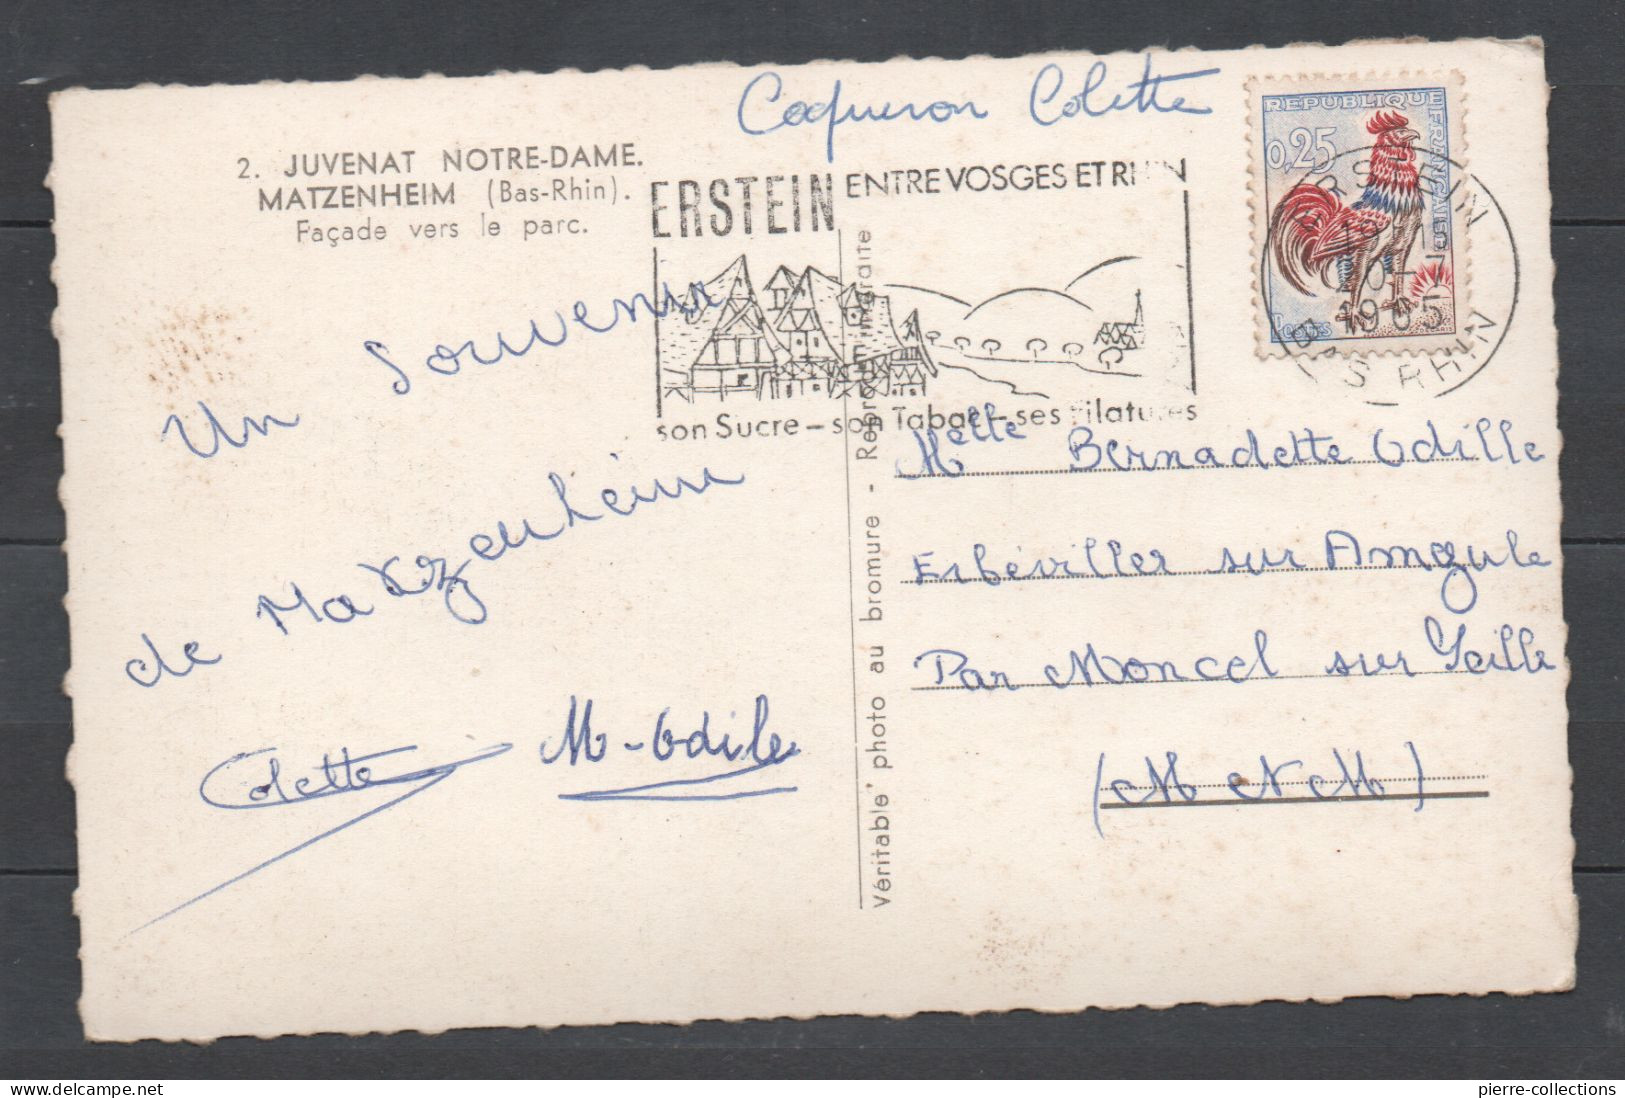 Coqueron Colette
2. JUVENAT NOTRE-DAME.
MATZENHEIM (Bas-Rhin).
Façade vers le parc.
ERSTEIN ENTRE VOSGES ET RHIN
son Sucre - son Tabac - ses Filatures
REPUBLIQUE FRANÇAISE
0,25
POSTES
ERSTEIN
1965
BAS RHIN
Un Souvenir
de Matzenheim
Colette M-Odile
Véritable photo au bromure - Reproduction interdite
Melle Bernadette Odille
Erbéviller sur Amezule
Par Moncel sur Seille
(M et M)
pierre-collections